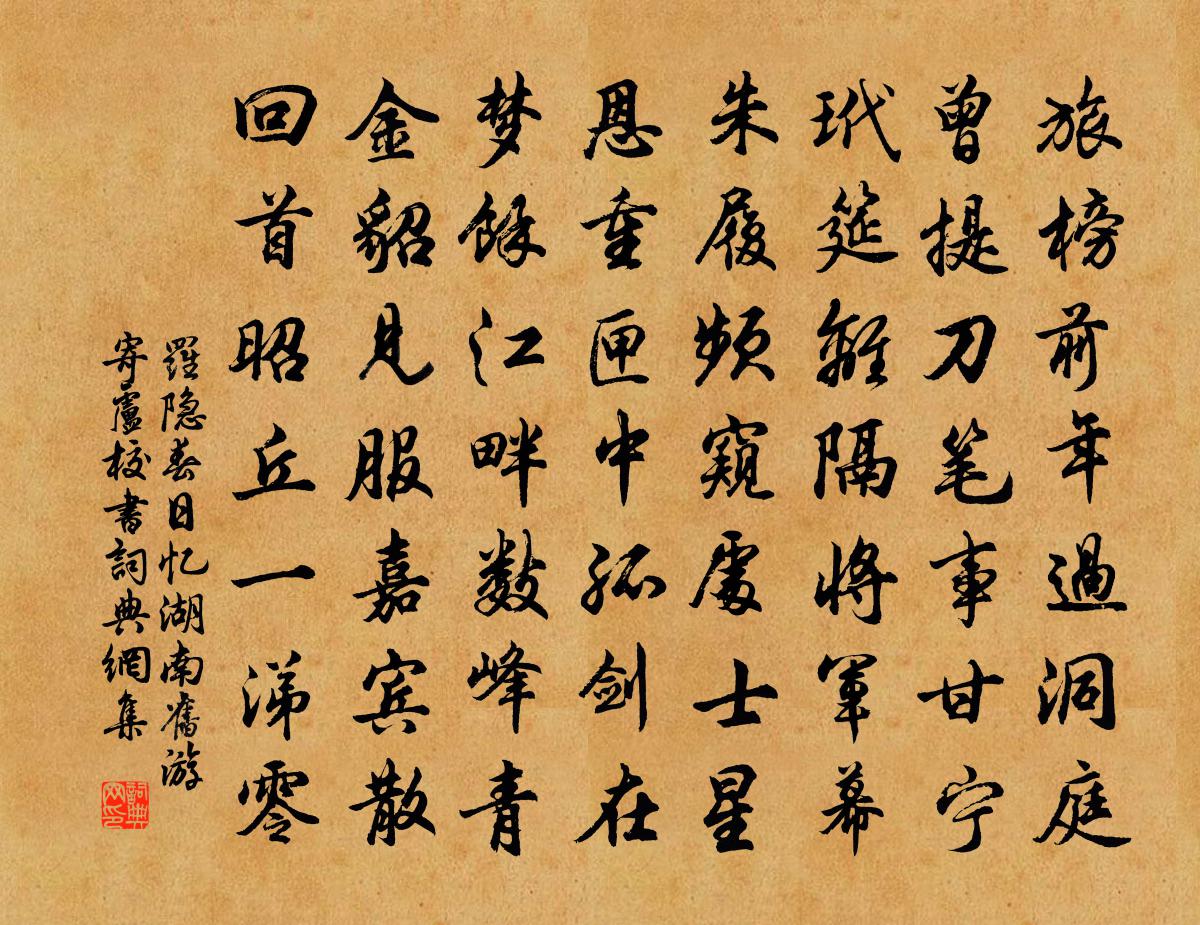 旅榜前年過洞庭
曾提刀笔事甘宁
玳筵離隔将軍幕
朱履频窺處士星
恩重匣中孤剑在
梦餘江畔数峰青
金貂見服嘉宾散
回首昭丘一涕零
羅隐春日忆湖南舊游
寄盧校書詞典網集
詞典
网印